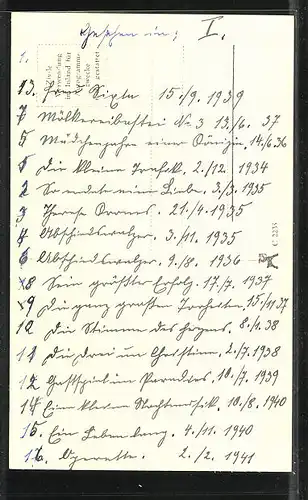 Gesehen in; I.
1.
13. Frau Sixta 15./9. 1939
7 Mädchenpensionat 13./6. 37
5 Mädchenjahre einer Königin 14./6.36
5 Die kleine Trafik. 2./12 1934
2 So endete eine Liebe. 3./3. 1935
3 Therese Krones. 21./4. 1935
4 Abschiedswalzer. 3./11. 1935
6 Abschiedswalzer. 9./8. 1936
8 Sein größter Erfolg. 17./7. 1937
9 Die ganz großen Torheiten 15./11 37
10 Die Stimme des Herzens. 8./1. 38
11 Die drei um Christine. 2./7. 1938
12 Gastspiel im Paradies. 10./7. 1939
14 Eine kleine Nachtmusik. 10./8. 1940
15. Ein Leben lang. 4./11. 1940
16. Operette. 2./2. 1941